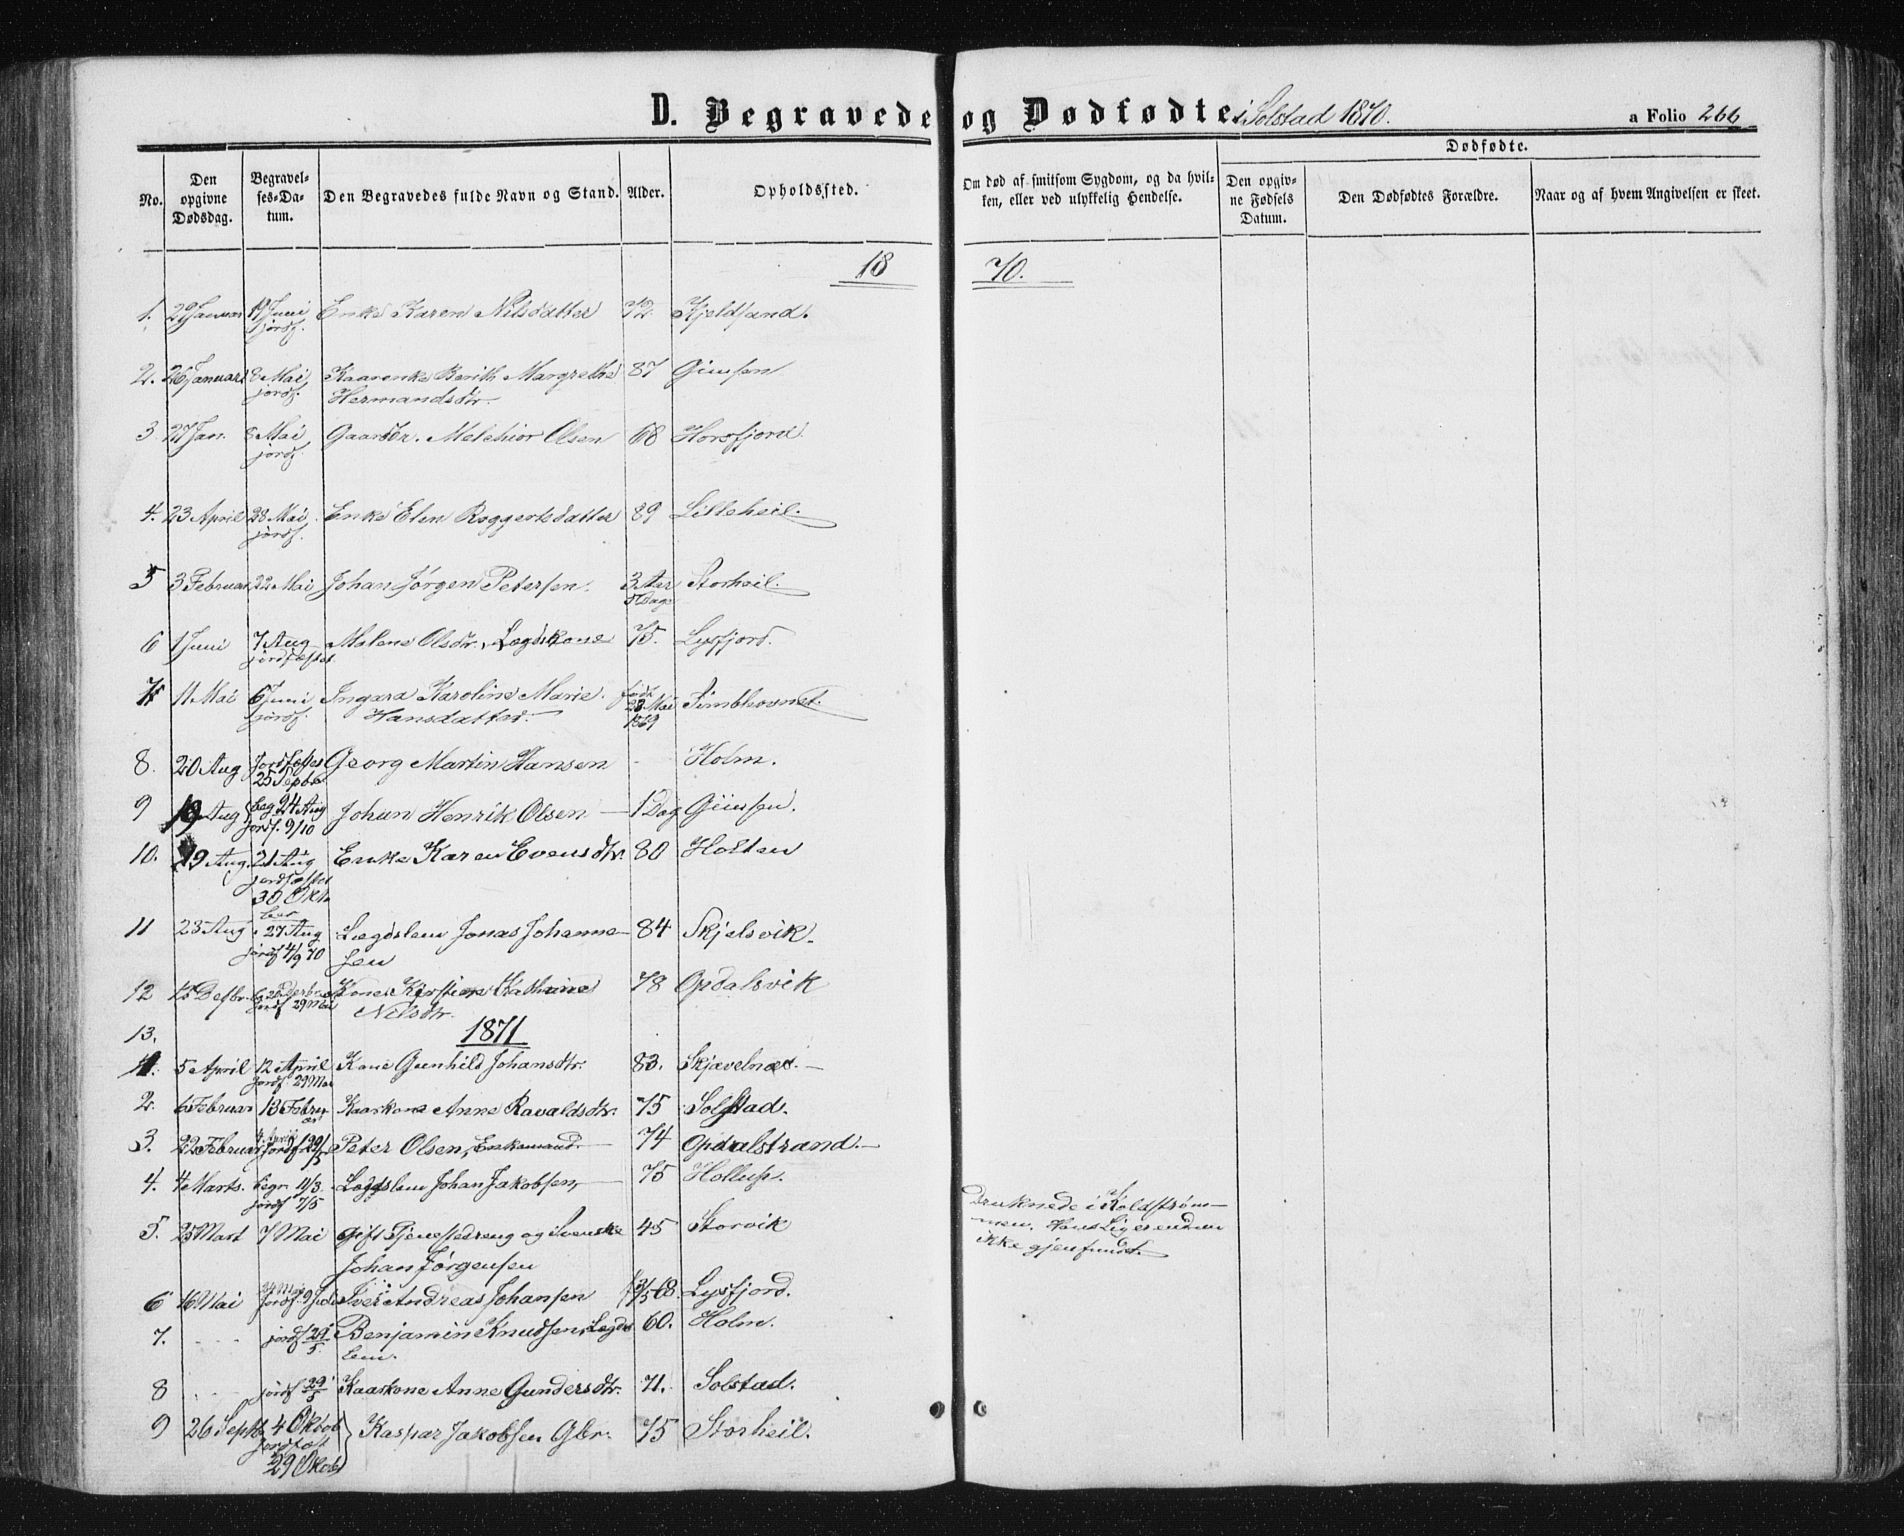 D. Begravede og Dødfødte i Solstad 1870. a Folio 266
Dødfødte.
No. Den opgivne Dødsdag. Begravelses-Datum. Den Begravedes fulde Navn og Stand. Alder. Opholdssted. Om død af smitsom Sygdom, og da hvilken, eller ved ulykkelig Hendelse. Den opgivne Fødsels Datum. Den Dødfødtes Forældre. Naar og af hvem Angivelsen er skeet.
18 70.
1. 29 Januar 19 Juni Enke Karen Nilsdatter 72 Kjeldsand.
jordf.
2. 26 Januar 8 Mai Kaarenke Berith Margrethe 87 Gimsen
jordf. Hermandsdtr.
3 27 Jan. 8 Mai Gaardbr. Melchior Olsen 68 Horsfjord
jordf.
4. 23 April 28 Mai Enke Elen Roggertsdatter 89 Lilleheil.
jordf.
5 3 Februar 22 Mai Johan Jørgen Petersen. 3 Aar Storheil.
Dage
6 1 Juni 7 Aug Malene Olsdtr. Lægdskone 75. Lysfjord.
jordfæstet
7 11 Mai 6 Juni Ingara Karoline Marie født
jordf. Hansdatter. 23 Mai
1869
8. 20 Aug Jordfæstes Georg Martin Hansen - Holm.
25 Septb
9 19 Aug beg 24 Aug Johan Henrik Olsen 1 Dag Gimsen.
jordf. 9/10
10. 19 Aug. 21 Aug Enke Karen Evensdtr. 80 Holten
jordfæstet
30 Okto
ber
11 23 Aug 27 Aug Lægdslem Jonas Johanne- 84 Skjelsvik.
jordf 4/9 70 sen
12 15 Desbr. Kone Kirstine Kathrine 78 Opdalsvik
jordf 29 Mai Nilsdtr.
13. 1871
1. 5 April 12 April Kone Gunhild Johansdtr. 83. Skjævelnæs.
jordf. 29 Mai
2. 6 Februar 13 Febru Kaarkone Anne Ravaldsdtr. 75 Solstad.
ar
3. 22 Februar jordf 29/5 Peter Olsen, Enkemand. 74 Opdalstrand.
4. 4 Marts. begr. 11/3 Lægdslem Johan Jakobsen, 75 Hollup.
jordf 7/5
Druknede i Koldstrøm-
men. Hans Lig er endnu
ikke gjenfundet.
5. 25 Mart 7 Mai Gift Tjenestedreng og Svenske 45 Storvik
Johan Jørgensen
6 16 Mai Jordf. 9 Juli Iver Andreas Johansen f 3/5 68. Lysfjord.
7. - - - jordf 29/5. Benjamin Knudsen, Lægds 60. Holm.
lem.
8 - - - jordf 29/5 Kaarkone Anne Gundersdtr. 71. Solstad.
9 26 Septb 4 Oktob Kaspar Jakobsen Gbr. 75 Storheil.
jordfæst
29 Oktob